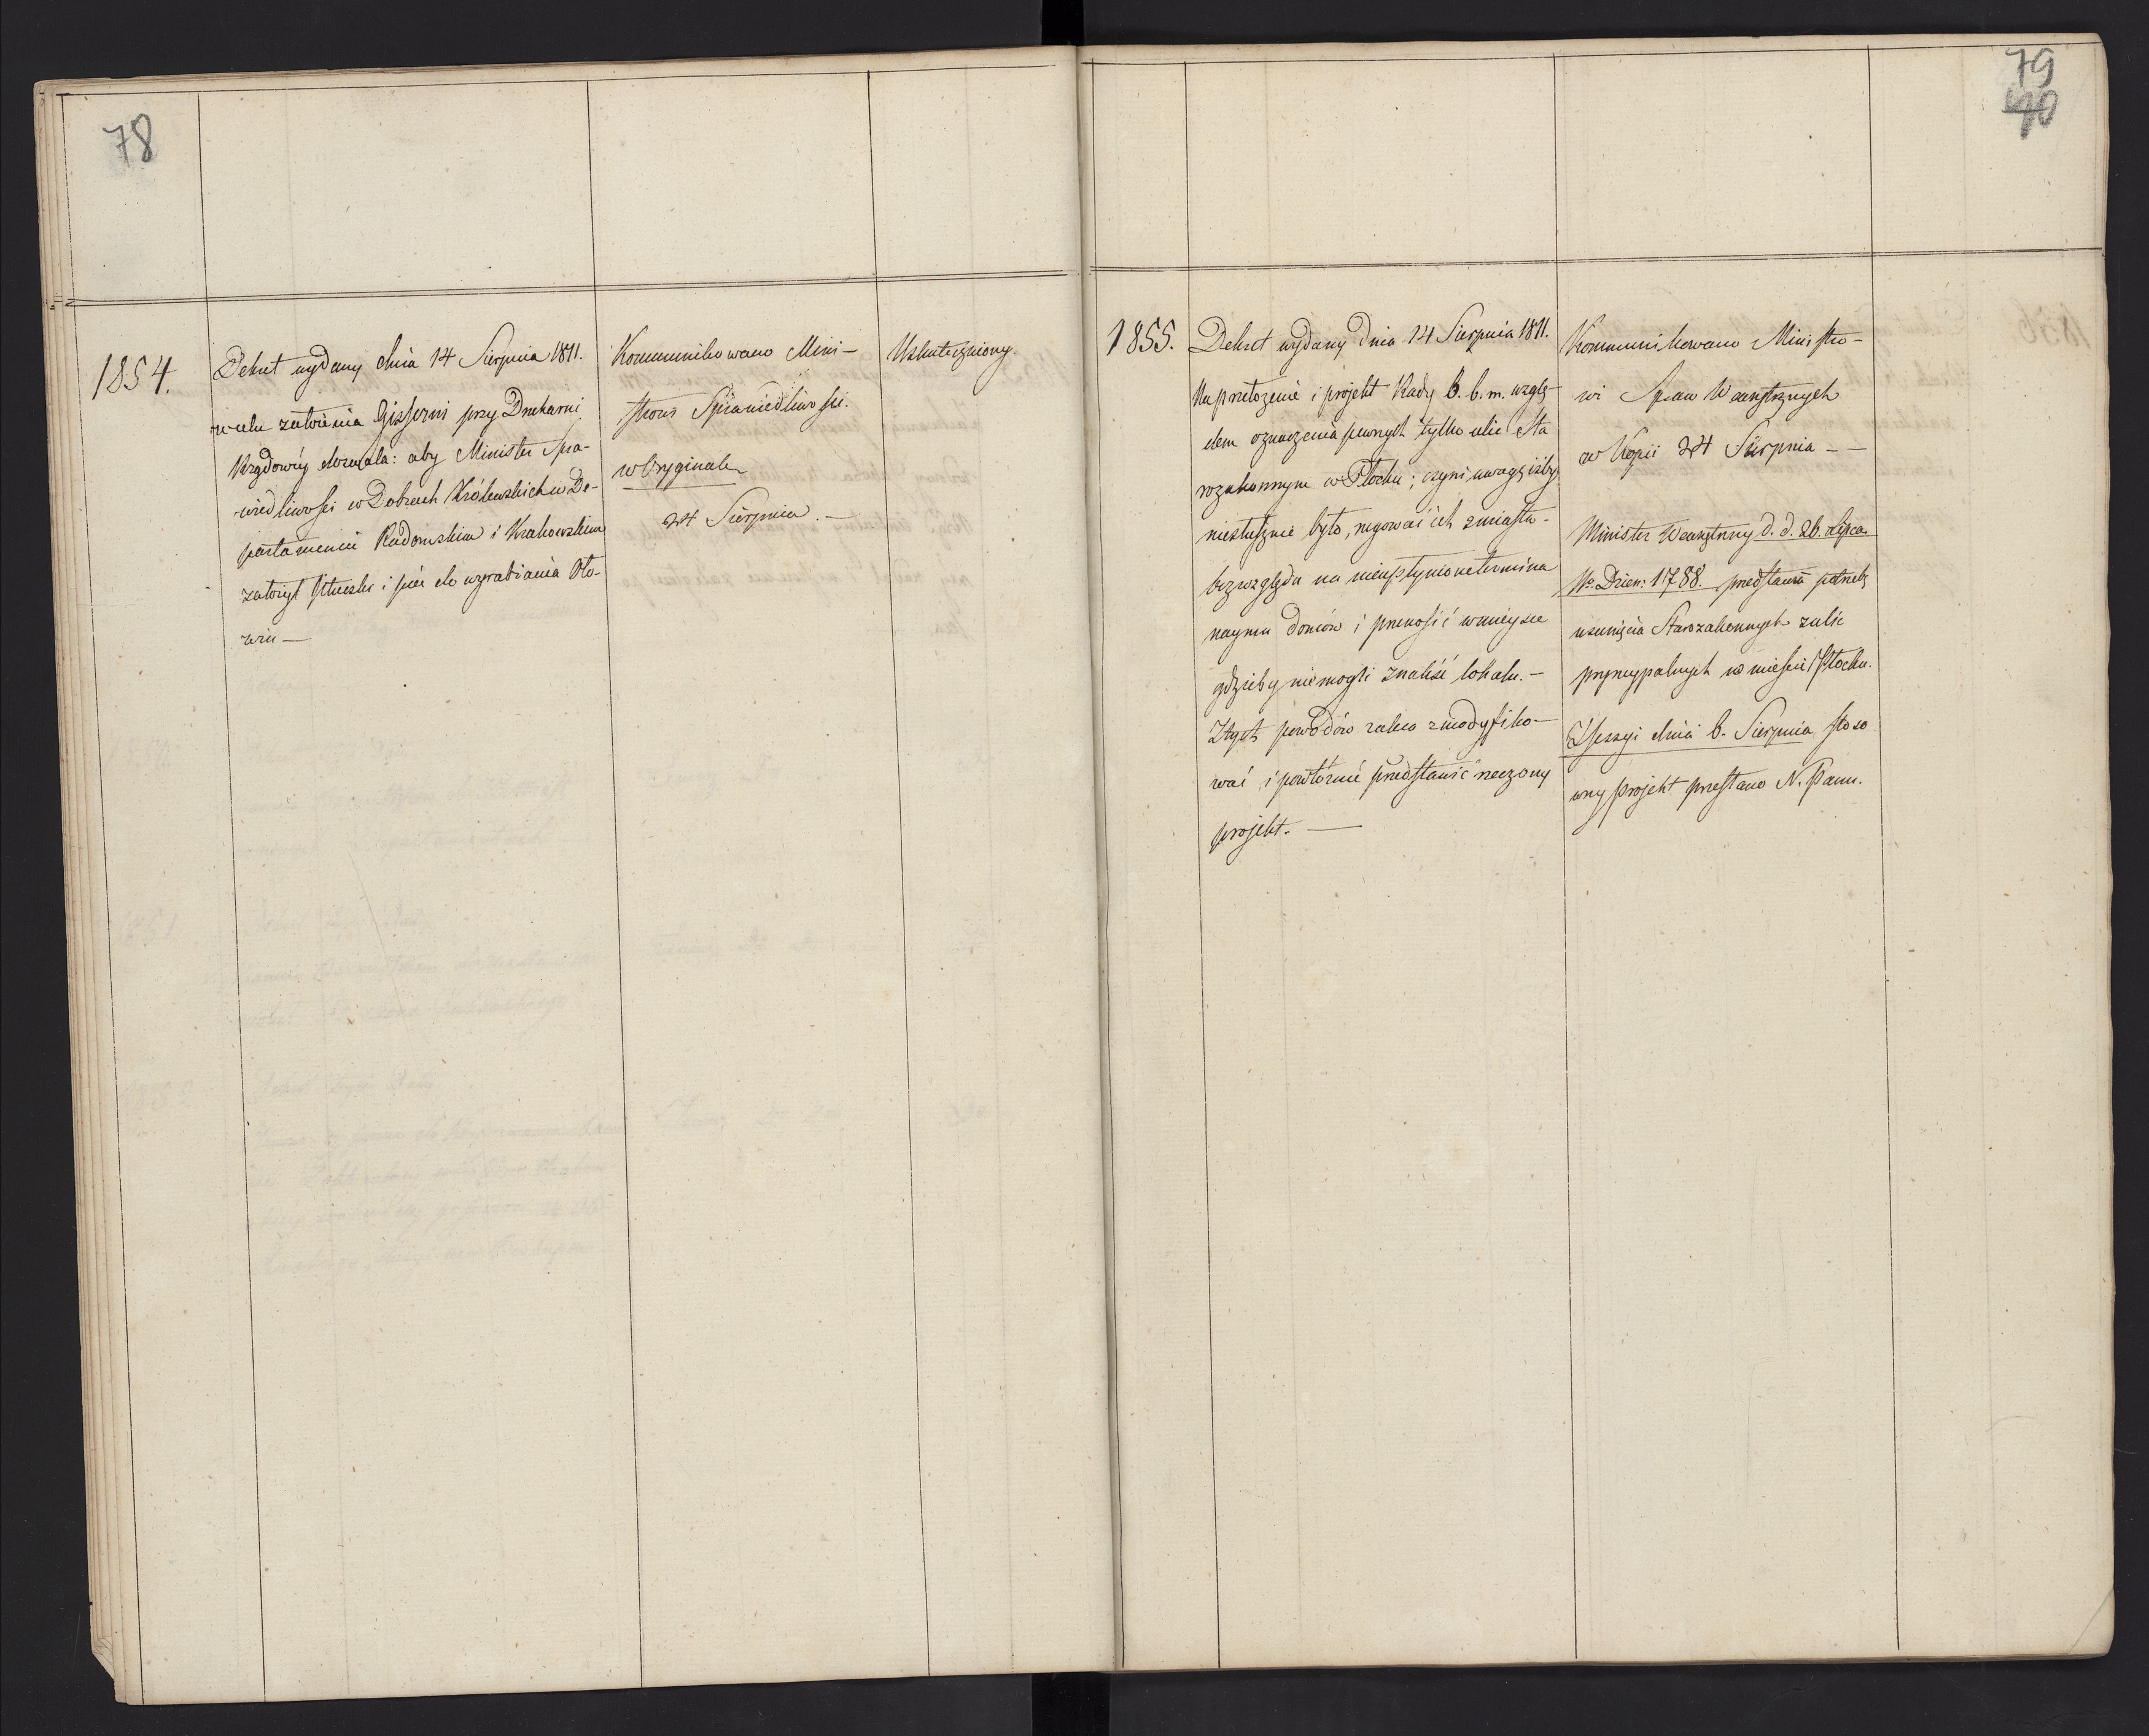 78
1854.
Dekret wydany dnia 14 Sierpnia 1811.
wcelu założenia Gisserni przy Drukarni
Rządowéy dozwala: aby Minister Spra-
wiedliwości w Dobrach Królewskich w De-
partamencie Radomskim i Krakowskim
założył i piec do wyrabiania Oło-
wiu —
Kommunikowano Mini-
strowi Sprawiedliwości.
w Oryginale
24 Sierpnia. —
Uskuteczniony.
79
40
1855.
Dekret wydany dnia 14 Sierpnia 1811.
Na przełożenie i projekt Rady b. b. m. wzglę-
dem oznaczenia pewnych tylko ulic Sta
rozakonnym w Płocku; czyni uwagę iżby
niesłusznie było, rugować ich zmiasta
bezwzględu na nieupłynione termina
naymu domów i przenosić wmieysce
gdzieby niemogli znaleść lokalu. —
Ztych powodów zaleca zmodyfiko-
wać i powtórnie przedstawić rzeczony
projekt. —
Kommunikowano Ministro-
wi Spraw Wewnętrznych
w Kopii 24 Sierpnia — —
Minister Wewnętrzny d. d. 26. Lipca
No. Dzien: 1788. przedstawia potrzebę
usunięcia Starozakonnych zulic
pryncypalnych w mieście Płocku.
Zsessyi dnia 6. Sierpnia stoso
wny projekt przesłano N. Panu.